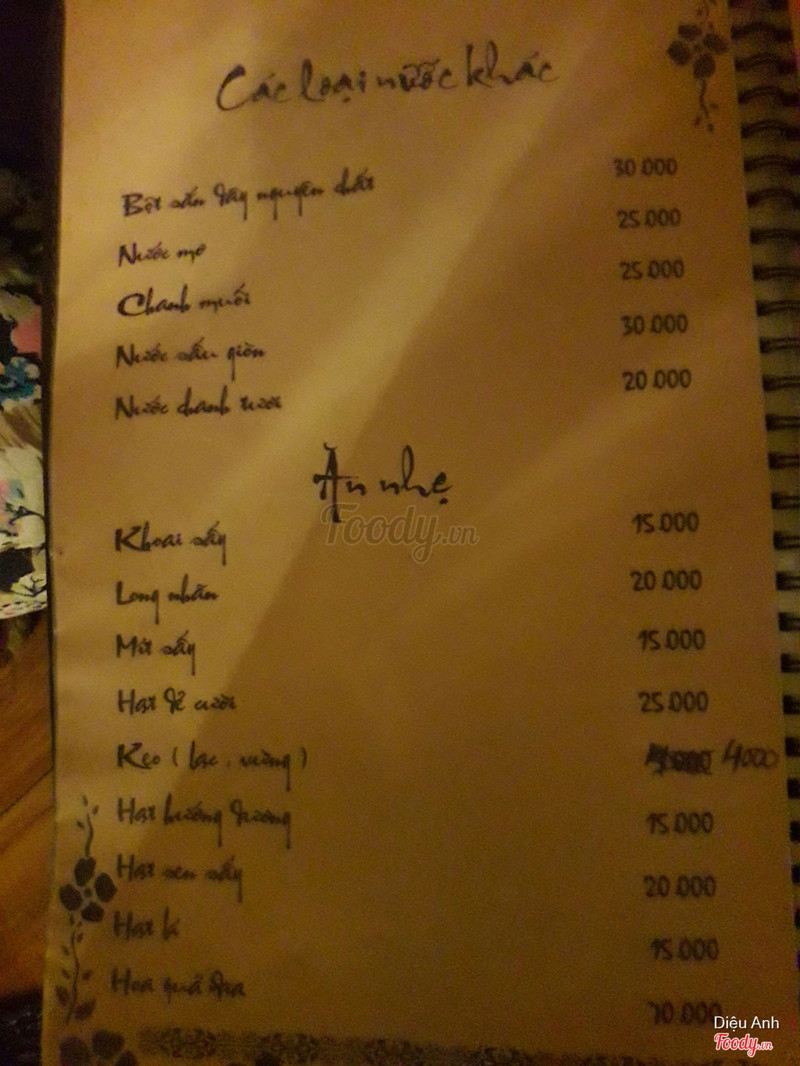 Các loại nước khác
Bột sắn dây nguyên chất 30.000
Nước mơ 25.000
Chanh muối 25.000
Nước sấu giòn 30.000
Nước chanh tươi 20.000
Ăn nhẹ
Foody.vn
Khoai sấy 15.000
Long nhãn 20.000
Mít sấy 15.000
Hạt dẻ cười 25.000
Kẹo (lạc, vừng) 4000
Hạt hướng dương 15.000
Hạt sen sấy 20.000
Hạt bí 15.000
Hoa quả dĩa 70.000
Diệu Anh
Foody.vn